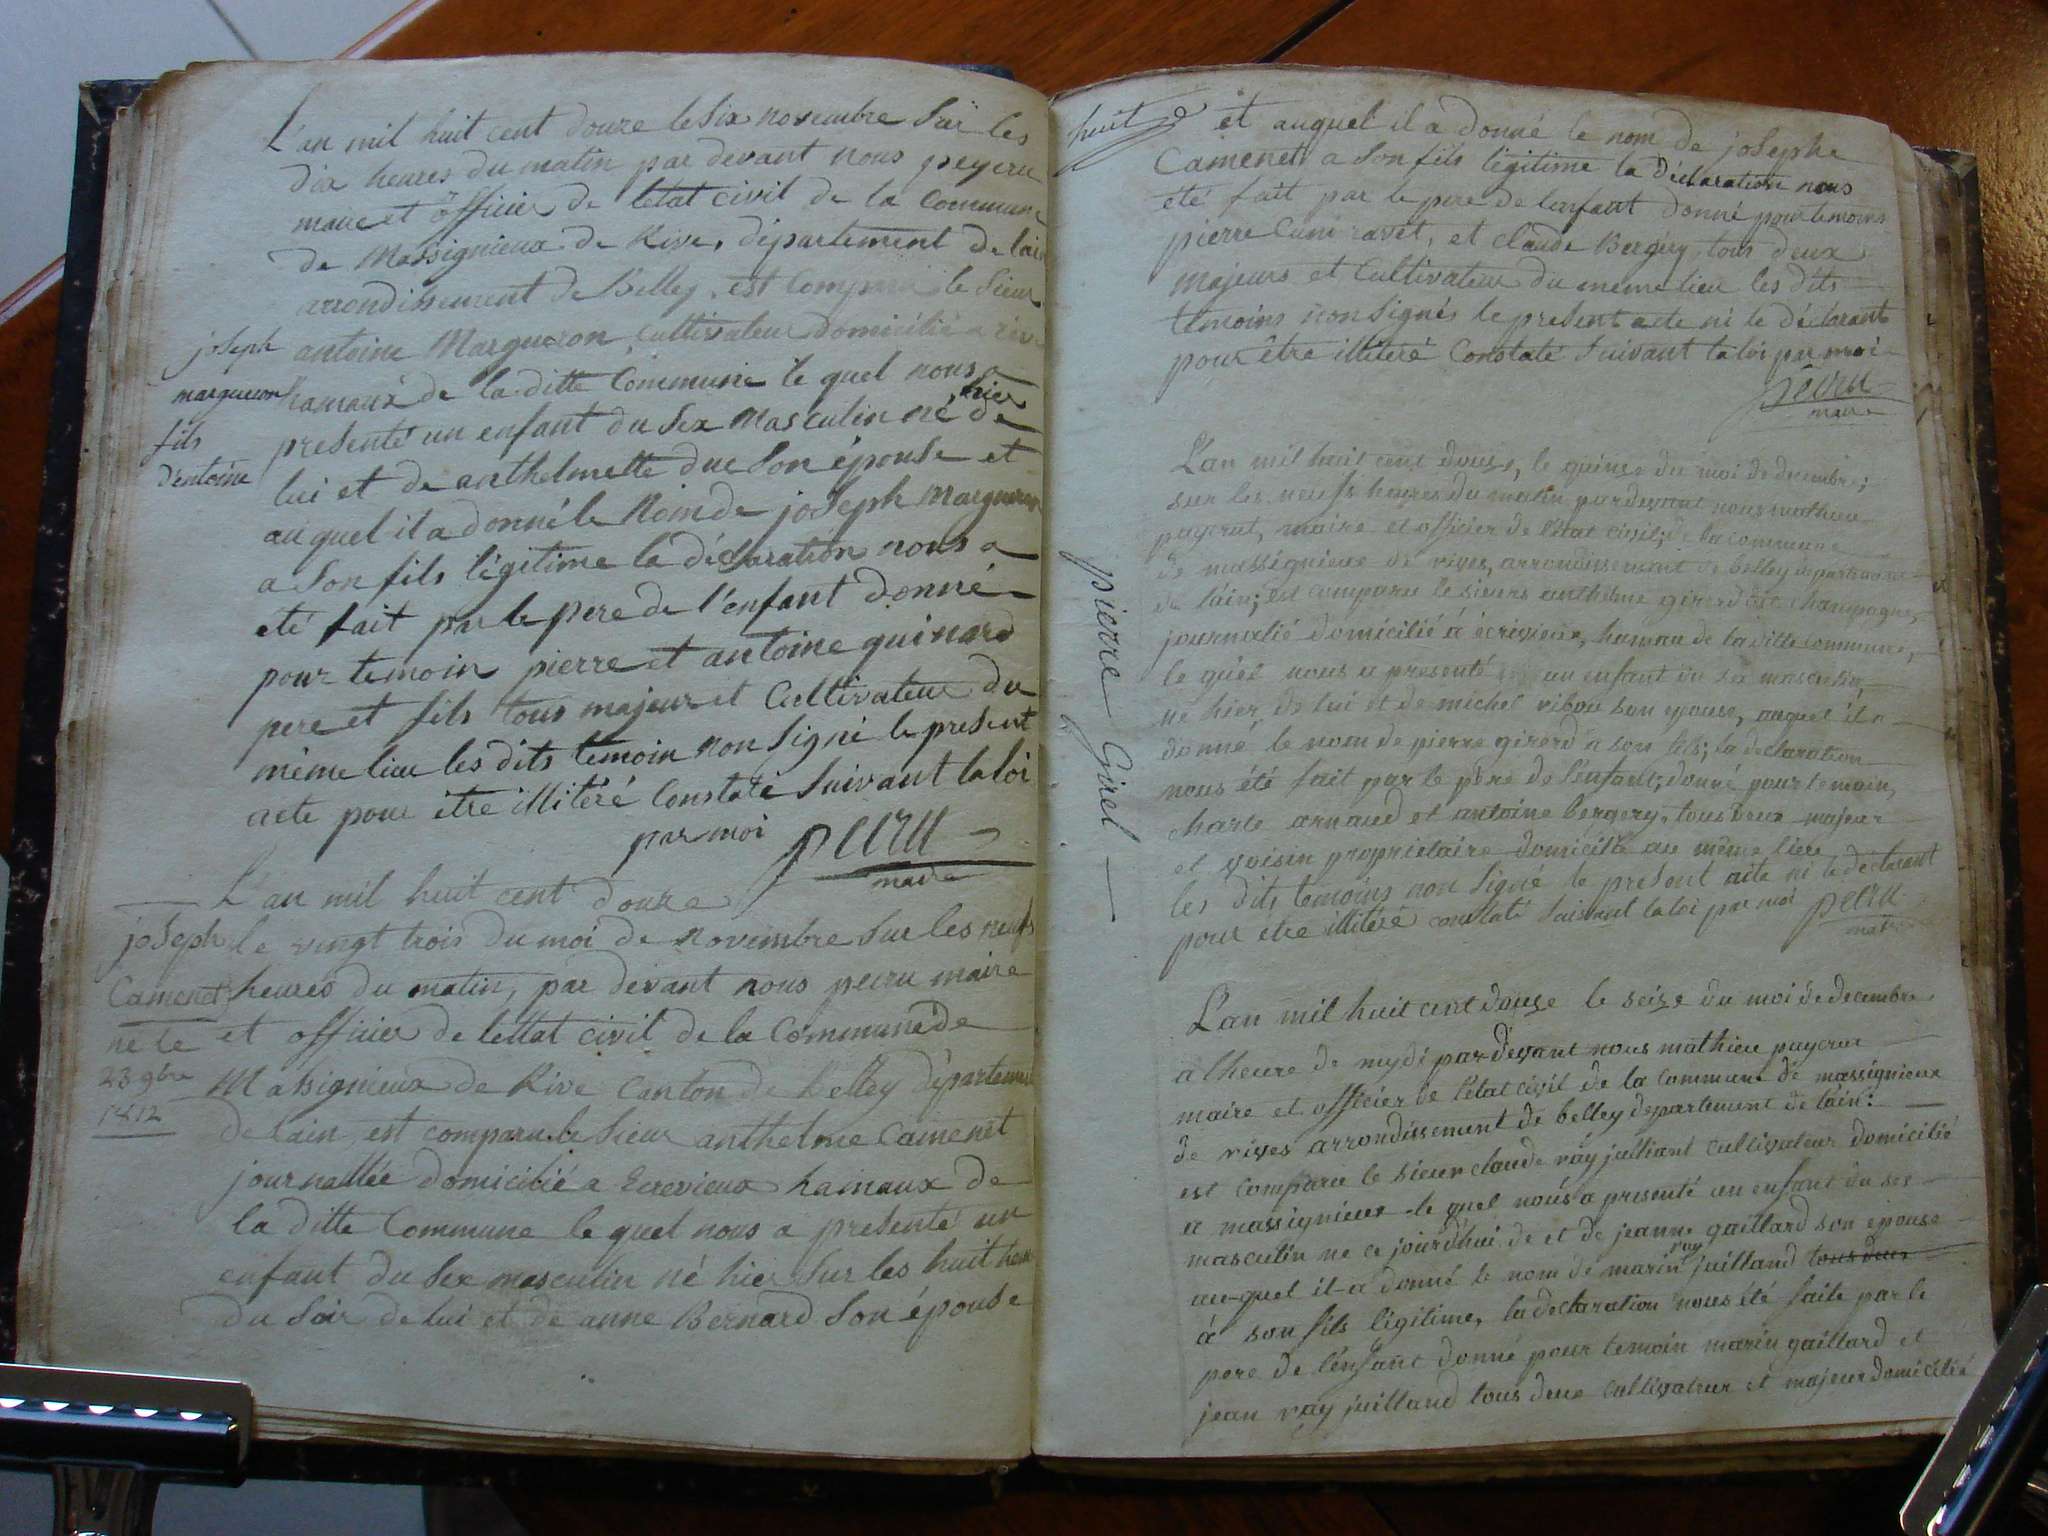 L'an mil huit cent douze le Six novembre Sur les
dix heures du matin par devant nous peycru
maire et officier de letat civil de la Commune
de Massignieux de Rive, département de lain
arrondissement de Belley, est Comparu le Sieur
antoine Margueron Cultivateur domicilié a rive
hamaux de la ditte Commune le quel nous a
presenté un enfant du Sex Masculin né hier de
lui et de anthelmette duc Son épouse et
au quel il a donné le Nom de joSeph Margueron
a Son fils légitime la déclaration nous a
été fait par le pere de l'enfant donné
pour temoin pierre et antoine guinard
pere et fils tous majeur et Cultivateur du
même lieu les dits temoin non Signé le present
acte pour être illitéré Constaté Suivant la loi
par moi pecru
maire
joSeph
margueron
fils
d'entoine
L'an mil huit cent douze
le vingt trois du moi de novembre Sur les neufs
heures du matin, par devant nous pecru maire
et officier de lettat civil de la Commune de
Massignieux de Rive Canton de Belley département
de lain, est comparu le Sieur anthelme Camenet
journallée domicilié a Ecrevieux hamaux de
la ditte Commune le quel nous a presenté un
enfant du Sex masculin né hier Sur les huit heure
du Soir de lui et de anne Bernard Son épouse
joSeph
Camenet
né le
23 9bre
1812
huit
et auquel il a donné le nom de joSephe
Camenet a Son fils légitime la déclaration nous
été fait par le pere de lenfant donné pour temoins
pierre Cuni ravet, et claude Bergery, tous deux
majeurs et Cultivateur du même lieu les dits
temoins non Signés le present acte ni le déclarant
pour être illitéré Constaté Suivant la loi par moi
pecru
maire
pierre Girel
L'an mil huit cent douze, le quinze du moi de decembre;
sur les neufs heures du matin par devant nous mathieu
paycrut, maire et officier de l'état civil; de la commune
de massignieux de rives, arrondissement de belley departement
de l'ain; est comparu le sieurs anthelme girerd dit champagne,
journalié domicilié à écrivieux, hamau de la ditte commune,
le quel nous a presenté un enfant du sex masculin,
né hier de lui et de michel ribou son epouse, auquel il a
donné le nom de pierre girerd a son fils; la déclaration
nous été fait par le père de l'enfant; donné pour temoin,
charle arnaud et antoine bergery, tous deux majeur
et voisin propriétaire domicilié au même lieu
les dits temoins non Signé le present acte ni le déclarant
pour être illitéré constaté Suivant la loi par moi pecru
maire
L'an mil huit cent douze le seize du moi de decembre
a lheure de mydi par devant nous mathieu paycrue
maire et officier de l'état civil de la commune de massignieux
de rives arrondissement de belley departement de l'ain:
est comparu le sieur claude ray julliand cultivateur domicilié
a massignieux le quel nous a presenté un enfant du sex
masculin ne ce jourd'hui de et de jeanne gaillard son epouse
auquel il a donné le nom de marin ray juilland tous deux
à son fils légitime, la déclaration nous été faite par le
pere de l'enfant donné pour temoin marin gaillard et
jean ray juilland tous deux cultivateur et majeur domicilié